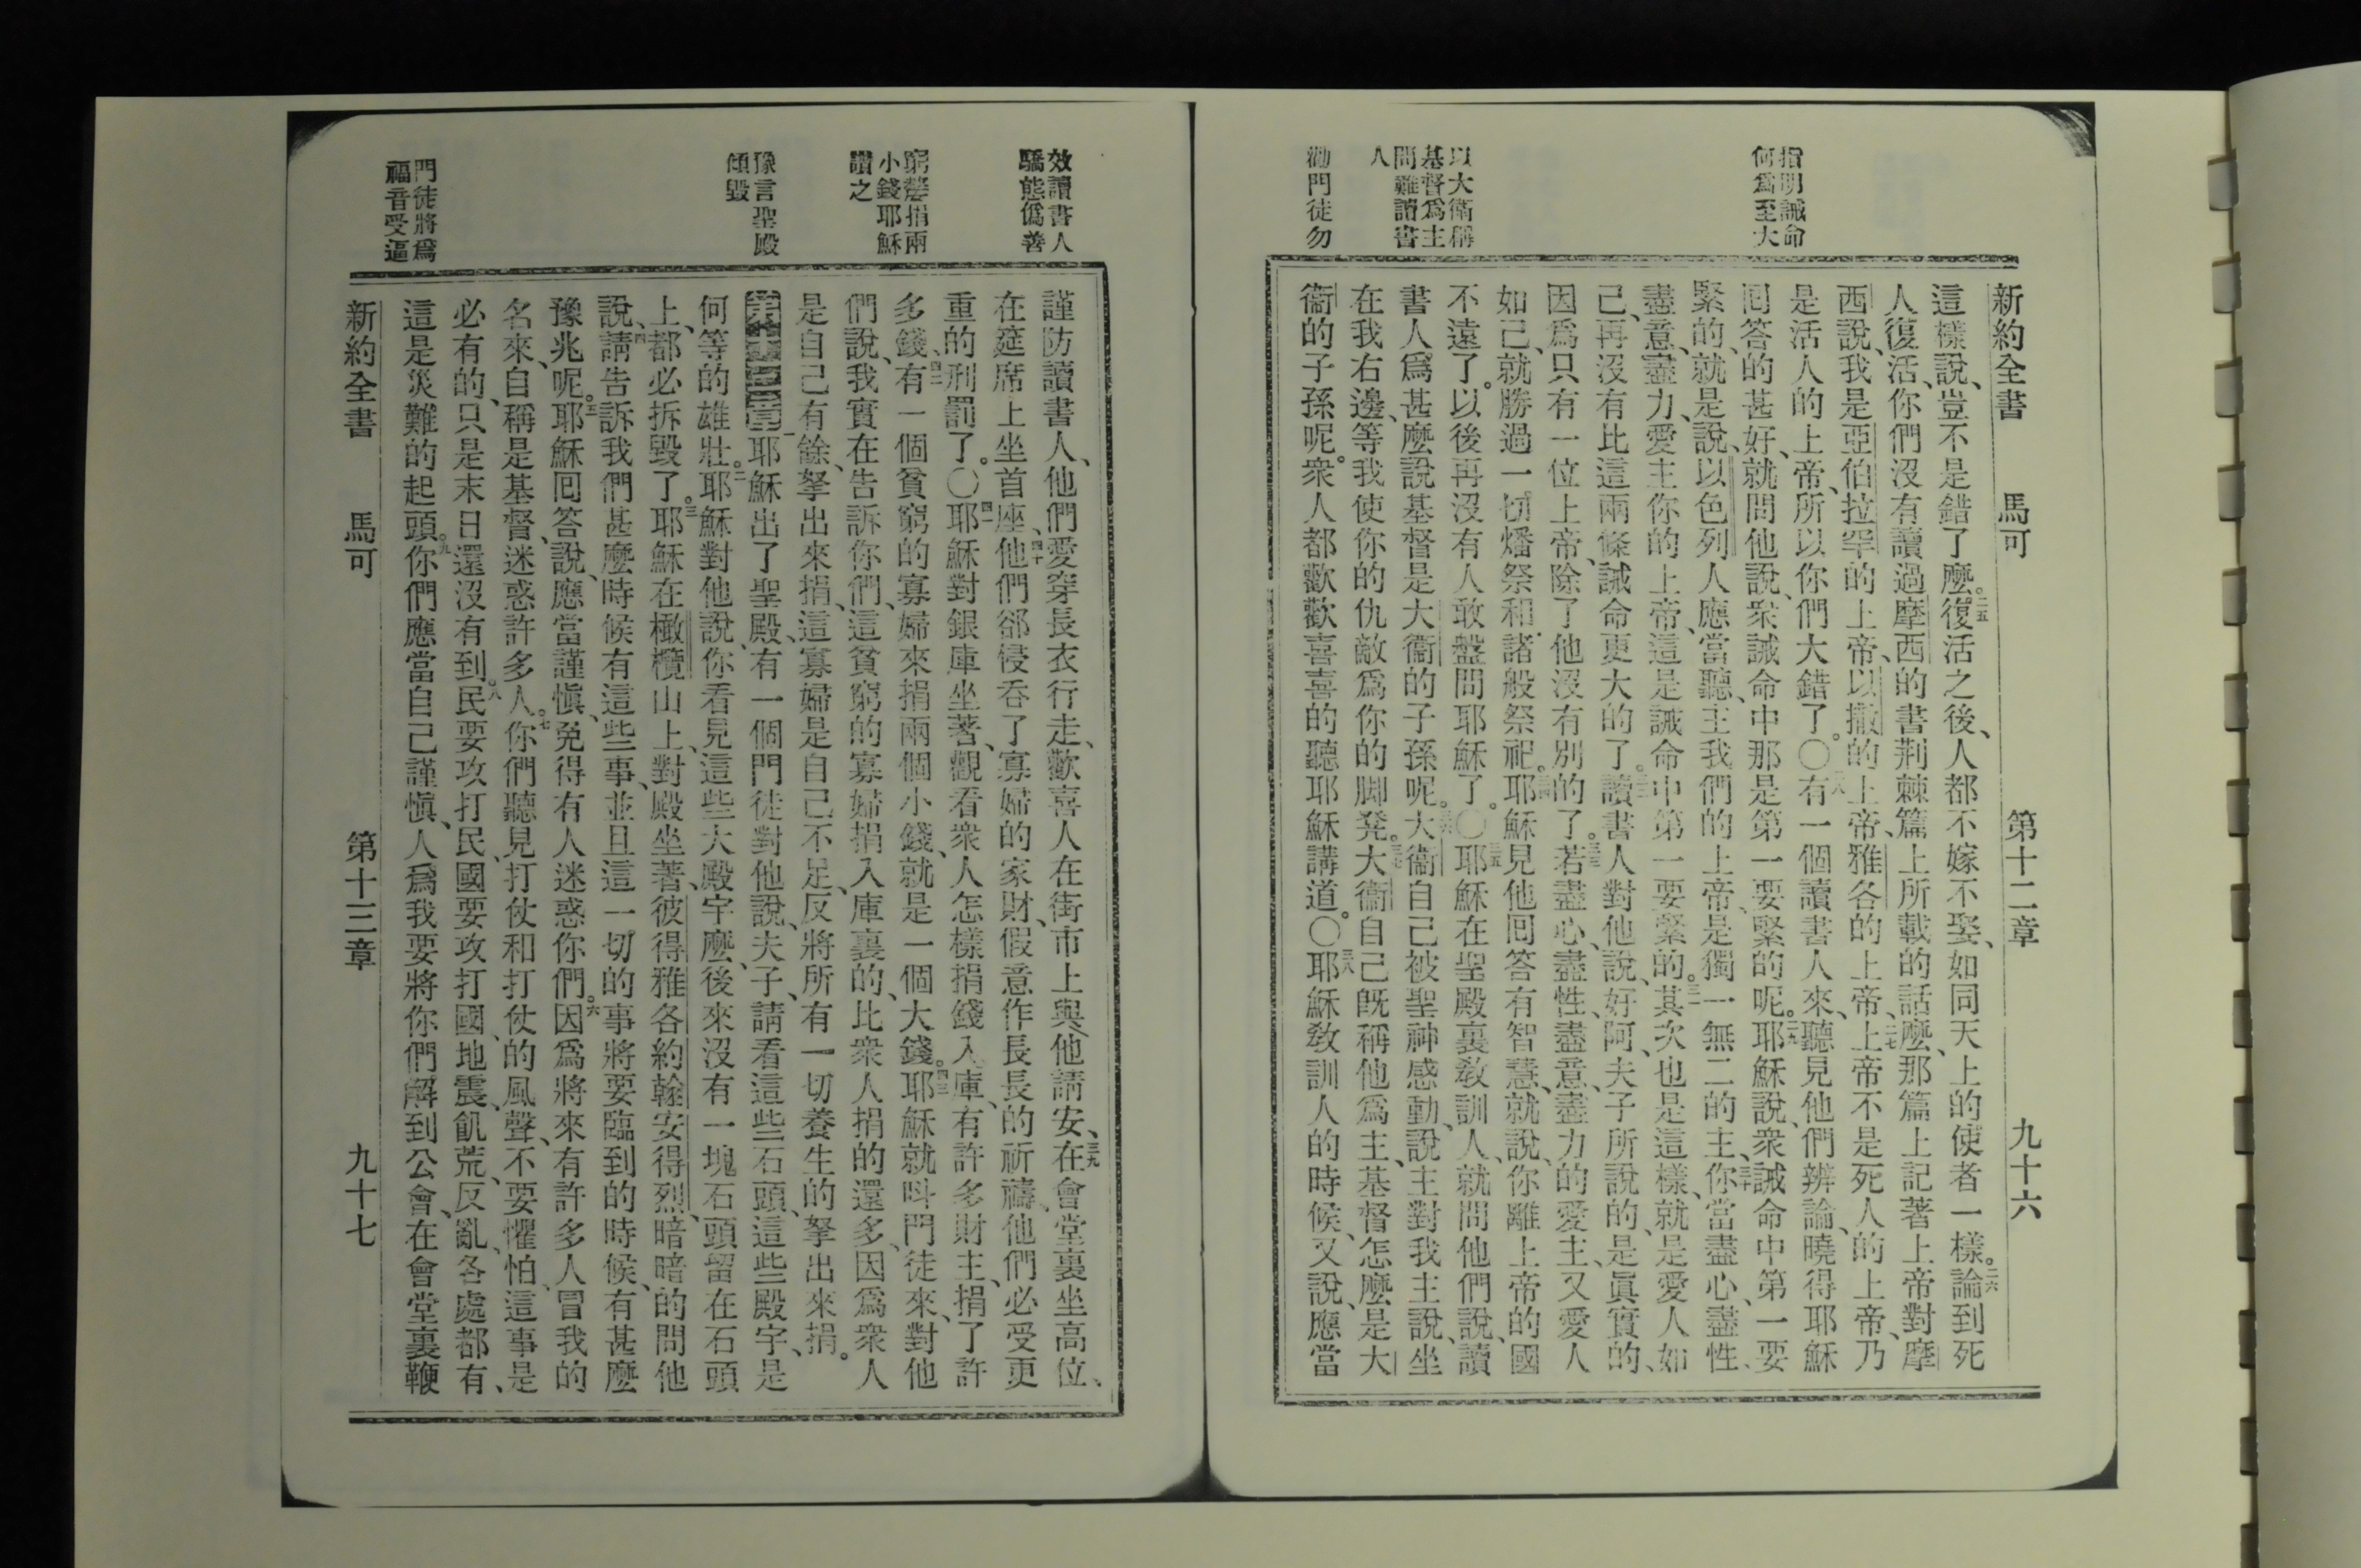 新約全書　馬可　第十二章　九十六
指明誡命
何爲至大
以大衞稱
基督爲主
問難讀書
人
勸門徒勿
這樣說、豈不是錯了麼。二五復活之後、人都不嫁不娶、如同天上的使者一樣。二六論到死
人復活、你們沒有讀過摩西的書荆棘篇上所載的話麼、那篇上記著上帝對摩
西說、我是亞伯拉罕的上帝、以撒的上帝、雅各的上帝、二七上帝不是死人的上帝、乃
是活人的上帝、所以你們大錯了。〇二八有一個讀書人來、聽見他們辨論、曉得耶穌
囘答的甚好、就問他說、衆誡命中那是第一要緊的呢。二九耶穌說、衆誡命中第一要
緊的、就是說、以色列人應當聽、主我們的上帝、是獨一無二的主、三十你當盡心、盡性、
盡意、盡力、愛主你的上帝、這是誡命中第一要緊的。三一其次也是這樣、就是愛人如
己、再沒有比這兩條誡命更大的了。三二讀書人對他說、好阿、夫子所說的、是眞實的、
因爲只有一位上帝、除了他沒有別的了。三三若盡心、盡性、盡意、盡力的愛主、又愛人
如己、就勝過一切燔祭和諸般祭祀。三四耶穌見他囘答有智慧、就說、你離上帝的國
不遠了。以後再沒有人敢盤問耶穌了。〇三五耶穌在聖殿裏敎訓人、就問他們說、讀
書人爲甚麼說基督是大衞的子孫呢。三六大衞自己被聖神感動、說、主對我主說、坐
在我右邊、等我使你的仇敵爲你的脚凳。三七大衞自己旣稱他爲主、基督怎麼是大
衞的子孫呢。衆人都歡歡喜喜的聽耶穌講道。〇三八耶穌敎訓人的時候、又說、應當
效讀書人
驕態僞善
窮嫠捐兩
小錢耶穌
讚之
豫言聖殿
傾毀
門徒將爲
福音受逼
謹防讀書人、他們愛穿長衣行走、歡喜人在街市上與他請安、三九在會堂裏坐高位、
在筵席上坐首座、四十他們卻侵吞了寡婦的家財、假意作長長的祈禱、他們必受更
重的刑罰了。〇四一耶穌對銀庫坐著、觀看衆人怎樣捐錢入庫、有許多財主、捐了許
多錢、四二有一個貧窮的寡婦來捐兩個小錢、就是一個大錢。四三耶穌就呌門徒來、對他
們說、我實在告訴你們、這貧窮的寡婦捐入庫裏的、比衆人捐的還多、因爲衆人
是自己有餘、拏出來捐、這寡婦是自己不足、反將所有一切養生的拏出來捐。
第十三章 一耶穌出了聖殿、有一個門徒對他說、夫子、請看這些石頭、這些殿宇、是
何等的雄壯。二耶穌對他說、你看見這些大殿宇麼、後來沒有一塊石頭留在石頭
上、都必拆毀了。三耶穌在橄欖山上、對殿坐著、彼得雅各約翰安得烈、暗暗的問他
說、四請告訴我們甚麼時候有這些事、並且這一切的事將要臨到的時候、有甚麼
豫兆呢。五耶穌囘答說、應當謹愼、免得有人迷惑你們。六因爲將來有許多人冒我的
名來、自稱是基督、迷惑許多人。七你們聽見打仗和打仗的風聲、不要懼怕、這事是
必有的、只是末日還沒有到。八民要攻打民、國要攻打國、地震、飢荒、反亂、各處都有、
這是災難的起頭。九你們應當自己謹愼、人爲我要將你們解到公會、在會堂裏鞭
新約全書　馬可　第十三章　九十七